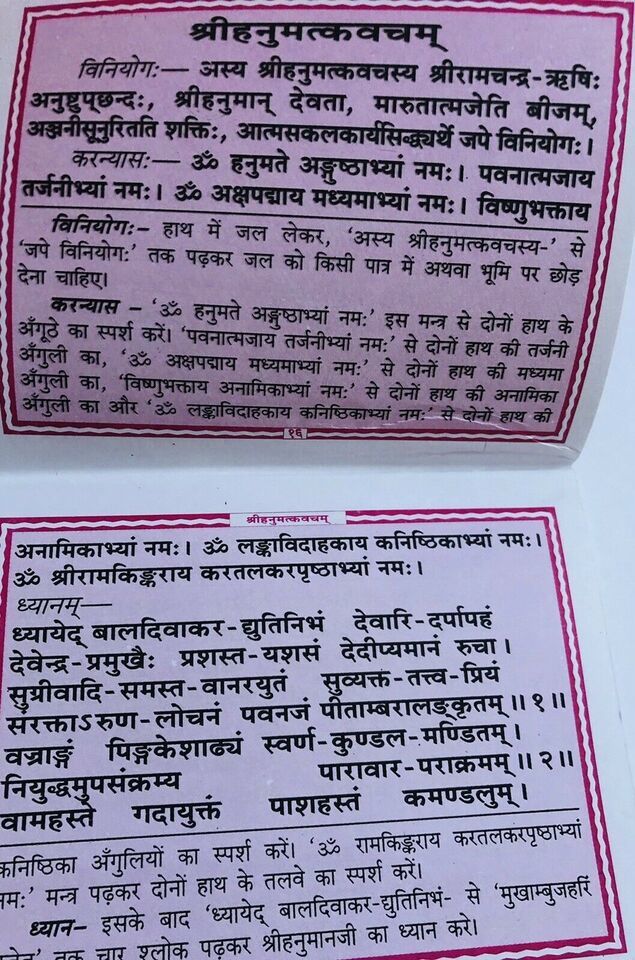 श्रीहनुमत्कवचम्
विनियोगः— अस्य श्रीहनुमत्कवचस्य श्रीरामचन्द्र-ऋषिः
अनुष्टुप्छन्दः, श्रीहनुमान् देवता, मारुतात्मजेति बीजम्,
अञ्जनीसूनुरितति शक्तिः, आत्मसकलकार्यसिद्ध्यर्थे जपे विनियोगः।
करन्यासः— ॐ हनुमते अङ्गुष्ठाभ्यां नमः। पवनात्मजाय
तर्जनीभ्यां नमः। ॐ अक्षपद्माय मध्यमाभ्यां नमः। विष्णुभक्ताय
विनियोगः– हाथ में जल लेकर, 'अस्य श्रीहनुमत्कवचस्य-' से
'जपे विनियोगः' तक पढ़कर जल को किसी पात्र में अथवा भूमि पर छोड़
देना चाहिए।
करन्यास – 'ॐ हनुमते अङ्गुष्ठाभ्यां नमः' इस मन्त्र से दोनों हाथ के
अँगूठे का स्पर्श करें। 'पवनात्मजाय तर्जनीभ्यां नमः' से दोनों हाथ की तर्जनी
अँगुली का, 'ॐ अक्षपद्माय मध्यमाभ्यां नमः' से दोनों हाथ की मध्यमा
अँगुली का, 'विष्णुभक्ताय अनामिकाभ्यां नमः' से दोनों हाथ की अनामिका
अँगुली का और 'ॐ लङ्काविदाहकाय कनिष्ठिकाभ्यां नमः' से दोनों हाथ की
१६
श्रीहनुमत्कवचम्
अनामिकाभ्यां नमः। ॐ लङ्काविदाहकाय कनिष्ठिकाभ्यां नमः।
ॐ श्रीरामकिङ्कराय करतलकरपृष्ठाभ्यां नमः।
ध्यानम्—
ध्यायेद् बालदिवाकर-द्युतिनिभं देवारि-दर्पापहं
देवेन्द्र-प्रमुखैः प्रशस्त-यशसं देदीप्यमानं रुचा।
सुग्रीवादि-समस्त-वानरयुतं सुव्यक्त-तत्त्व-प्रियं
संरक्ताऽरुण-लोचनं पवनजं पीताम्बरालङ्कृतम्॥१॥
वज्राङ्गं पिङ्गकेशाढ्यं स्वर्ण-कुण्डल-मण्डितम्।
नियुद्धमुपसंक्रम्य पारावार-पराक्रमम्॥२॥
वामहस्ते गदायुक्तं पाशहस्तं कमण्डलुम्।
कनिष्ठिका अँगुलियों का स्पर्श करें। 'ॐ रामकिङ्कराय करतलकरपृष्ठाभ्यां
नमः' मन्त्र पढ़कर दोनों हाथ के तलवे का स्पर्श करें।
ध्यान– इसके बाद 'ध्यायेद् बालदिवाकर-द्युतिनिभं- से 'मुखाम्बुजहरिं
तक चार श्लोक पढ़कर श्रीहनुमानजी का ध्यान करे।